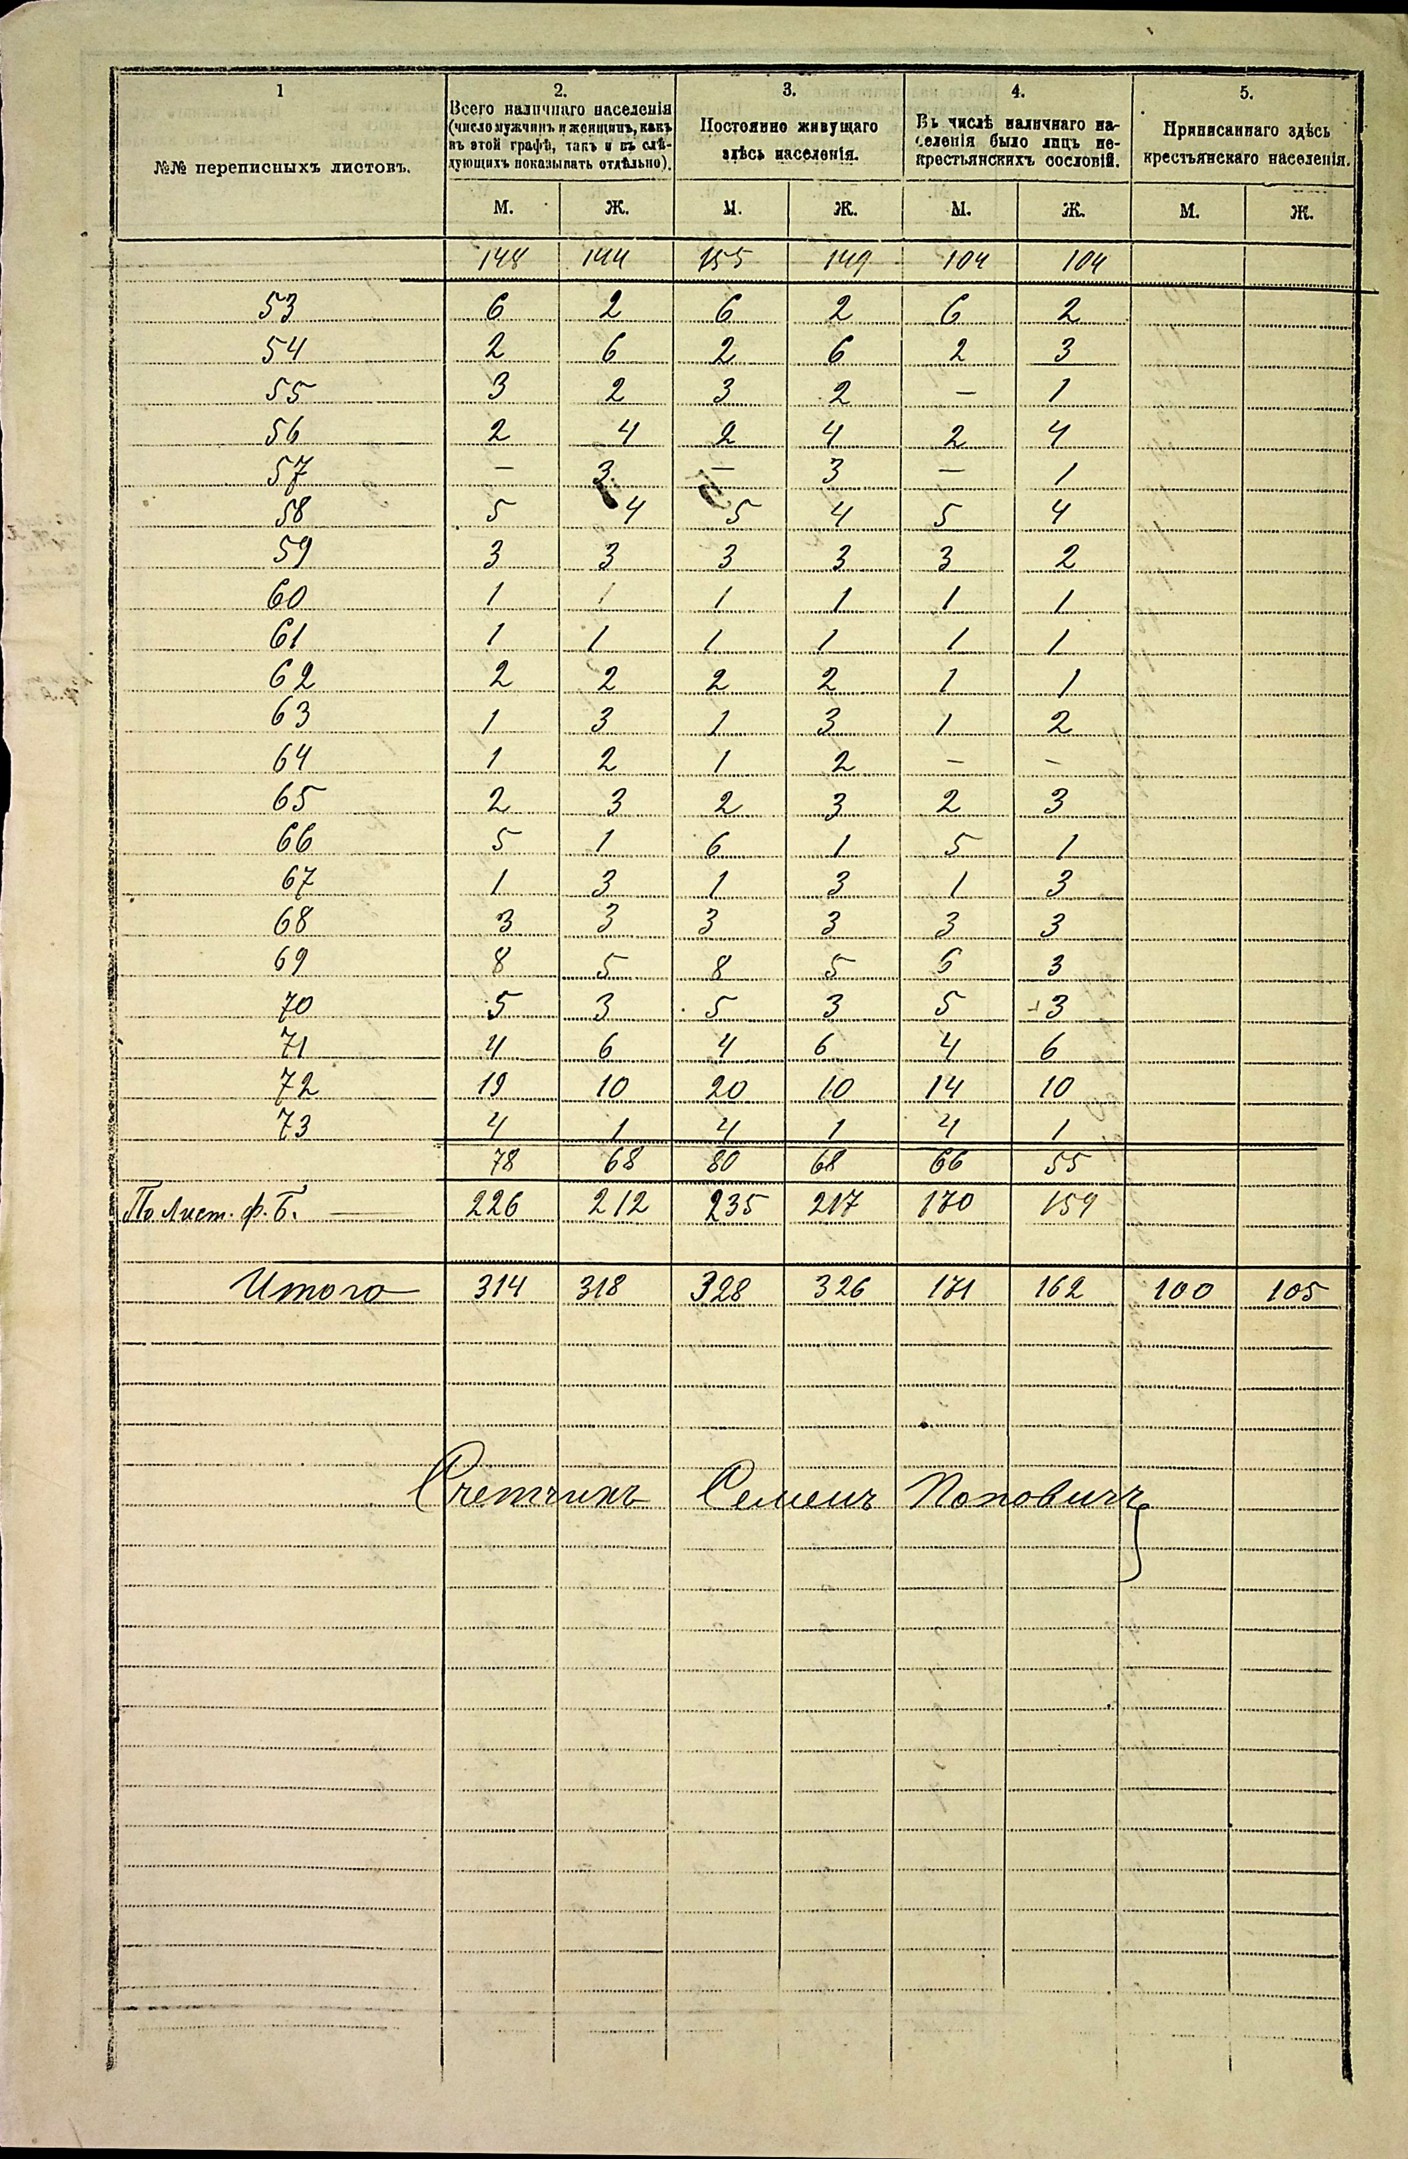 1 2. 3. 4. 5.
№№ переписныхъ листовъ.
Всего наличнаго населенія
(число мужчинъ и женщинъ, какъ
въ этой графѣ, такъ и въ слѣ-
дующихъ показывать отдѣльно).
Постоянно живущаго
здѣсь населенія.
Въ числѣ наличнаго на-
селенія было лицъ не-
крестьянскихъ сословій.
Приписаннаго здѣсь
крестьянскаго населенія.
М. Ж. М. Ж. М. Ж. М. Ж.
148 144 155 149 104 104
53 6 2 6 2 6 2
54 2 6 2 6 2 3
55 3 2 3 2 — 1
56 2 4 2 4 2 4
57 — 3 — 3 — 1
58 5 4 5 4 5 4
59 3 3 3 3 3 2
60 1 1 1 1 1 1
61 1 1 1 1 1 1
62 2 2 2 2 1 1
63 1 3 1 3 1 2
64 1 2 1 2 — —
65 2 3 2 3 2 3
66 5 1 6 1 5 1
67 1 3 1 3 1 3
68 3 3 3 3 3 3
69 8 5 8 5 6 3
70 5 3 5 3 5 3
71 4 6 4 6 4 6
72 19 10 20 10 14 10
73 4 1 4 1 4 1
78 68 80 68 66 55
По лист. ф. Б. — 226 212 235 217 170 159
Итого 314 318 328 326 171 162 100 105
Счетчикъ Семенъ Поповичъ